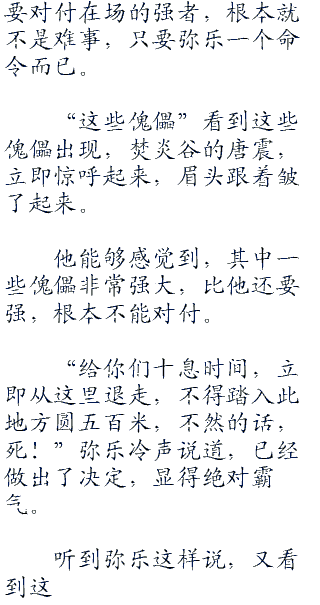 要对付在场的强者，根本就
不是难事，只要弥乐一个命
令而已。
“这些傀儡”看到这些
傀儡出现，焚炎谷的唐震，
立即惊呼起来，眉头跟着皱
了起来。
他能够感觉到，其中一
些傀儡非常强大，比他还要
强，根本不能对付。
“给你们十息时间，立
即从这里退走，不得踏入此
地方圆五百米，不然的话，
死！”弥乐冷声说道，已经
做出了决定，显得绝对霸
气。
听到弥乐这样说，又看
到这